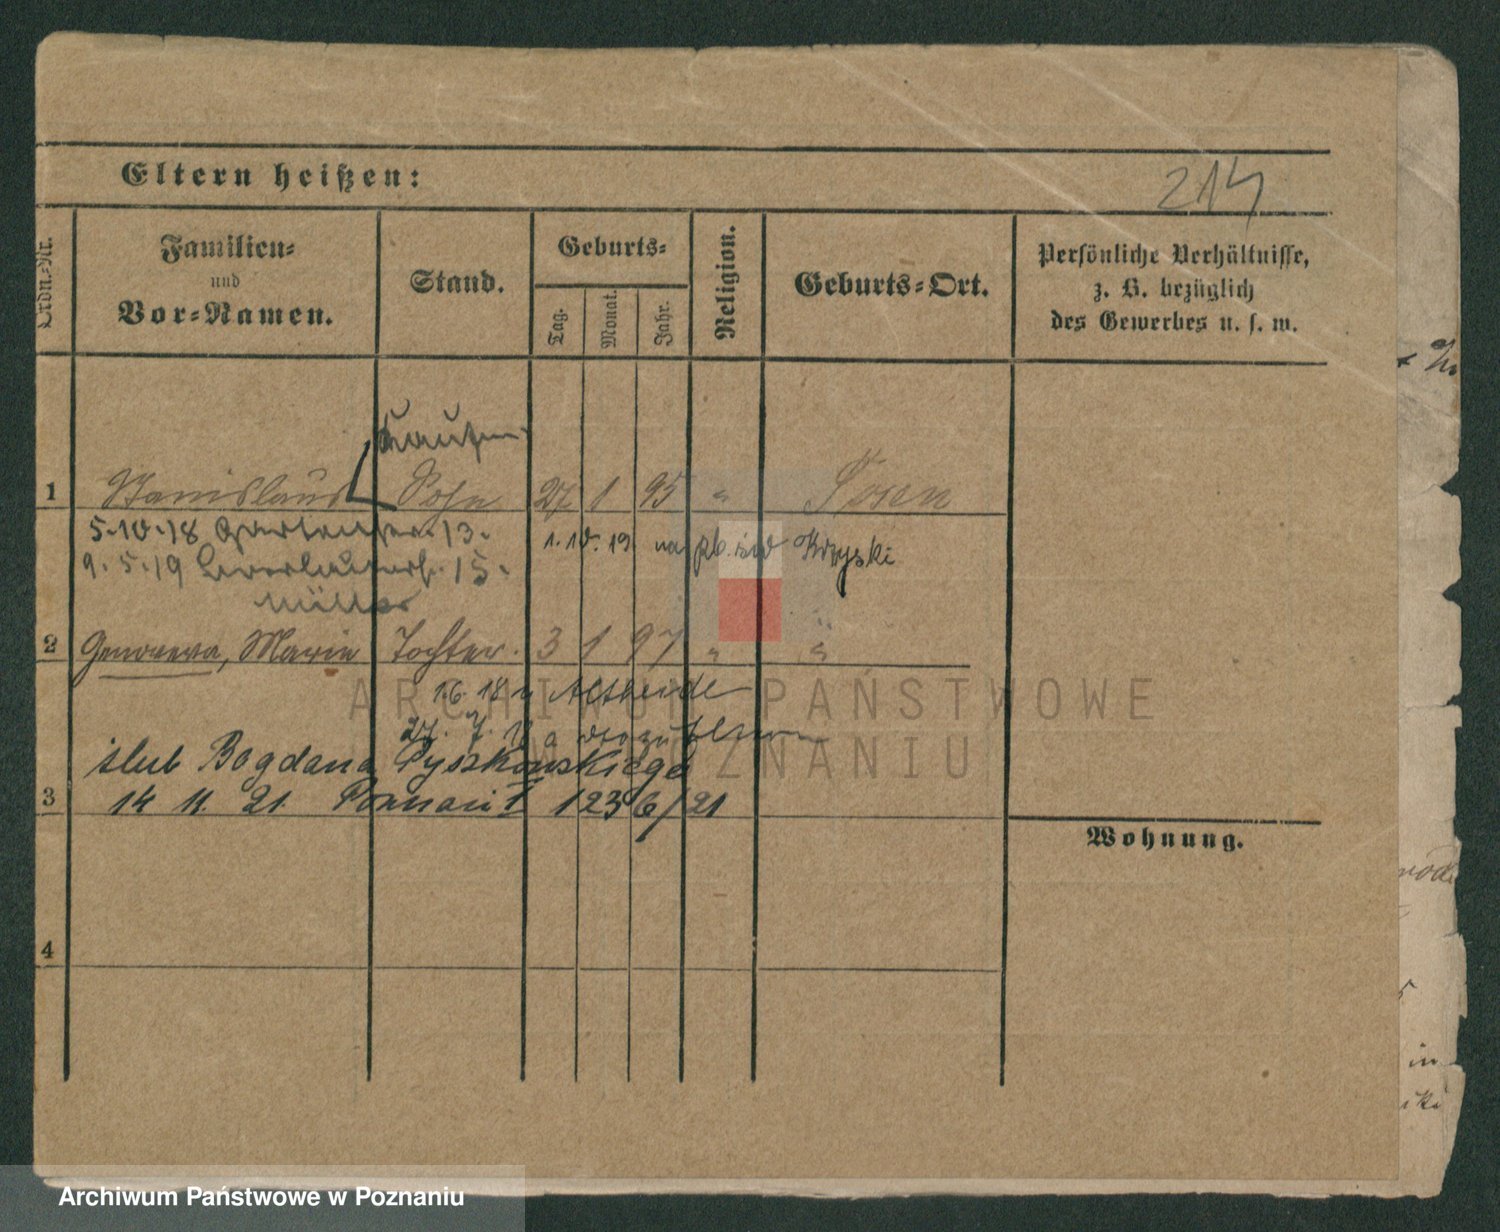 Eltern heißen:
214
Ordn.-Nr.
Familien-
und
Vor-Namen.
Stand.
Geburts-
Tag.
Monat.
Jahr.
Religion.
Geburts-Ort.
Persönliche Verhältnisse,
z. B. bezüglich
des Gewerbes u. s. w.
1 Stanislaus Sohn 27 1 95 " Posen
5.10.18 Gartenstr. 13.
1.10.19 na
9.5.19 15.
Müller
2 Genoveva, Marie Tochter. 3 1 97 " "
1.6.18 n Altheide
27. 7.
ślub Bogdana Pyszkowskiego
3 14 11. 21. Poznań I 1236/21
Wohnung.
4
ARCHIWUM PAŃSTWOWE
W POZNANIU
Archiwum Państwowe w Poznaniu